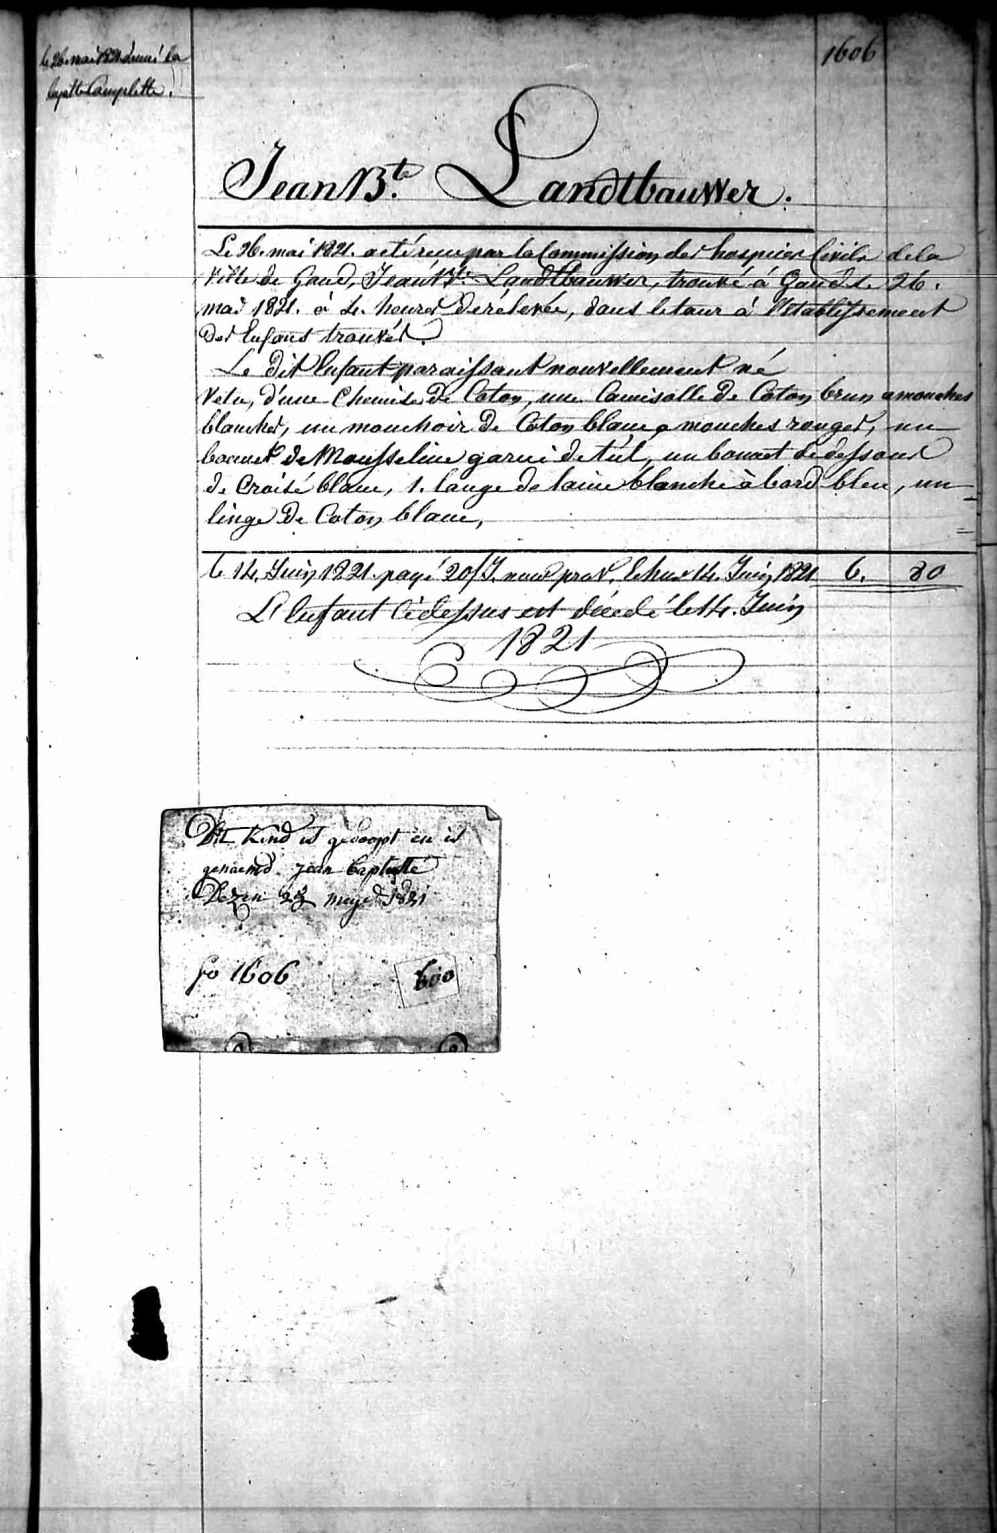 le 26. mai 1821 donné la
layette Complette.
1606
Jean Bte. Landtbauwer.
Le 26. mai 1821. a eté recu par la Commission des hospices Civils de la
Ville de Gand, Jean Bte. Landtbauwer, trouvé à Gand le 26.
mai 1821. à heures de rélevée, dans le tour à l'Etablissement
des Enfans trouvés.
Le dit Enfant paraissant nouvellement né
Vetu, d'une Chemise De Coton, une Camisolle De Coton brun a mouches
blanches, un mouchoir De Coton blanc a mouches rouges, un
bonnet de Mousseline garni de tul, un bonnet de dessous
de Croisé blanc, 1. lange de laine blanche à bord bleu, un
linge De Coton blanc,
le 14. Juin 1821. payé 20/J. nour Echu 14. Juin 1821 6. 80
L'Enfant Ci dessus est décedé le 14. Juin
1821
Dit Kind is gedoopt en is
genaemd jean baptiste
Dezen meye 1821
fo 1606
600